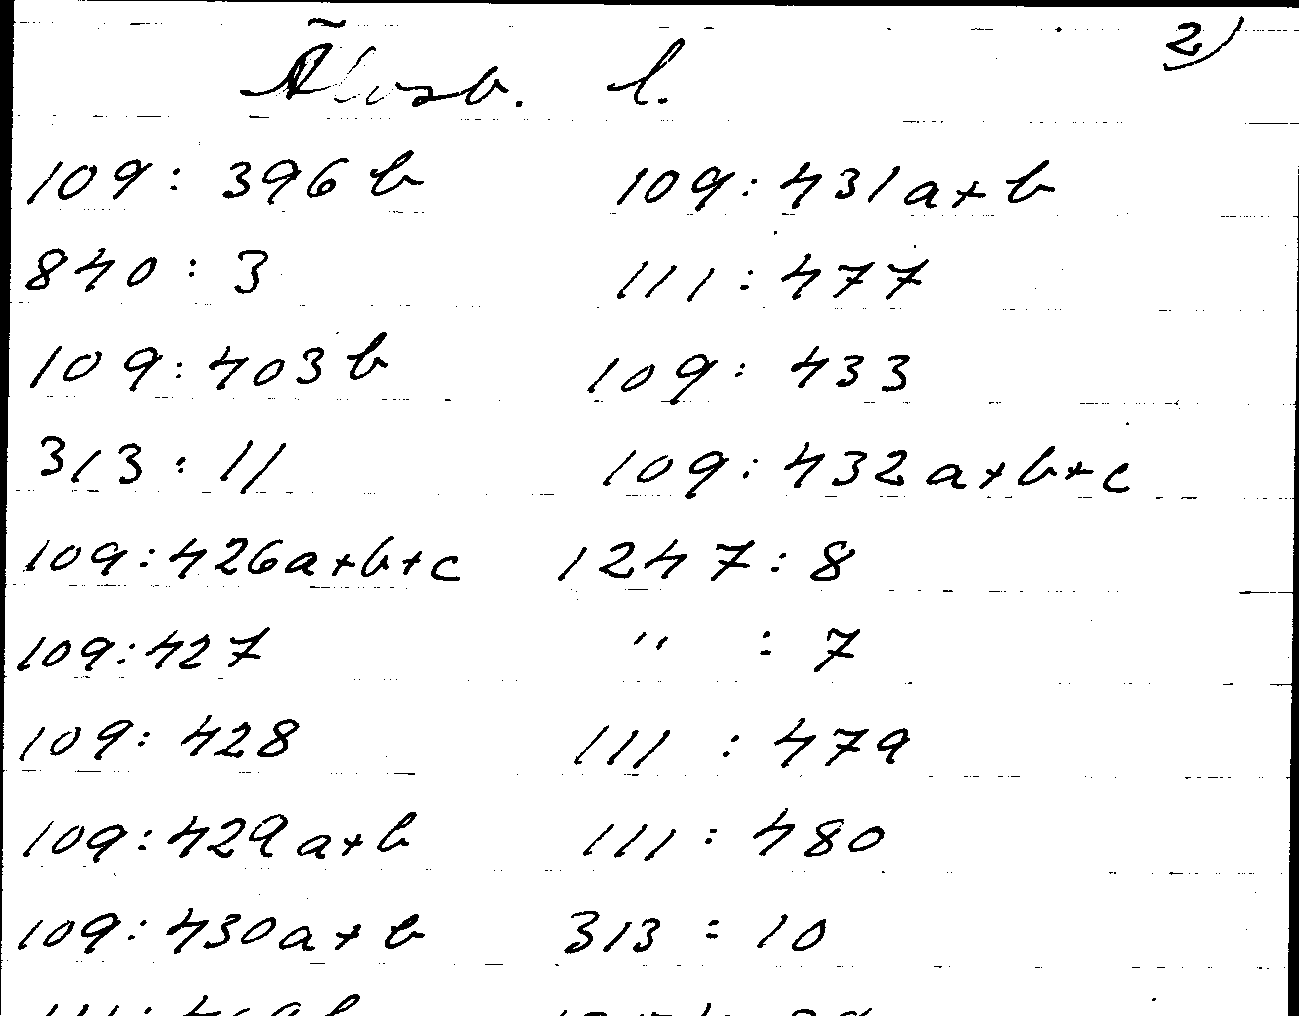 2)
Älvsb. l.
109: 396 b 109: 431 a+b
840: 3 111: 477
109: 403 b 109: 433
313: 11 109: 432 a+b+c
109: 426 a+b+c 1247: 8
109: 427 " : 7
109: 428 111: 479
109: 429 a+b 111: 480
109: 430 a+b 313: 10